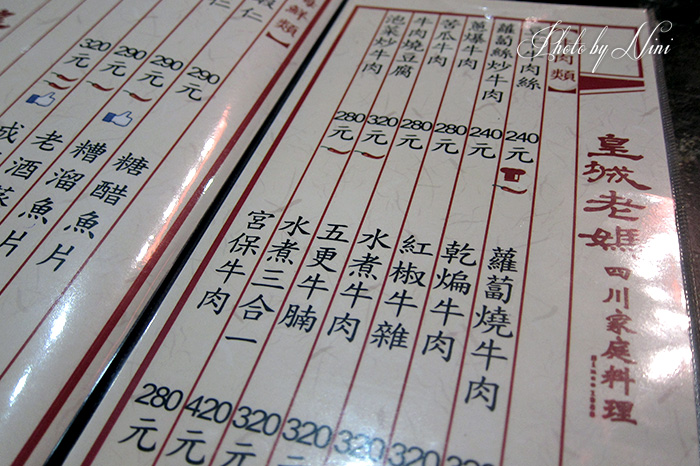 Photo by Nini
皇城老媽 四川家庭料理
肉類】
牛肉絲 240元
蘿蔔絲炒牛肉 240元
蔥爆牛肉 280元
苦瓜牛肉 280元
牛肉燒豆腐 320元
泡菜炒牛肉 280元
蘿蔔燒牛肉
乾煸牛肉 320
紅椒牛雜 320
水煮牛肉 320元
五更牛腩 320元
水煮三合一 420元
宮保牛肉 280元
鮮類】
仁 290元
仁 290元
290元
320元
糖醋魚片
糟溜魚片
老酒魚片